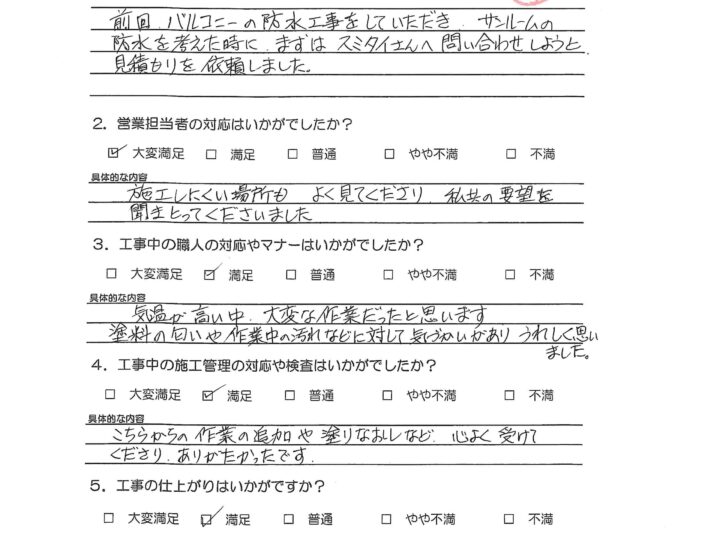 前回、バルコニーの防水工事をしていただき、サンルームの
防水を考えた時に、まずは スミタイさんへ 問い合わせしようと、
見積もりを依頼しました。
2. 営業担当者の対応はいかがでしたか？
☑ 大変満足 □ 満足 □ 普通 □ やや不満 □ 不満
具体的な内容
施工しにくい場所も よく見てくださり、私共の要望を
聞きとってくださいました
3. 工事中の職人の対応やマナーはいかがでしたか？
□ 大変満足 ☑ 満足 □ 普通 □ やや不満 □ 不満
具体的な内容
気温が高い中、大変な作業だったと思います
塗料の匂いや作業中の汚れなどに対して気づかいがあり うれしく思い
ました。
4. 工事中の施工管理の対応や検査はいかがでしたか？
□ 大変満足 ☑ 満足 □ 普通 □ やや不満 □ 不満
具体的な内容
こちらからの作業の追加や塗りなおしなど、心よく受けて
くださり、ありがたかったです.
5. 工事の仕上がりはいかがですか？
□ 大変満足 ☑ 満足 □ 普通 □ やや不満 □ 不満